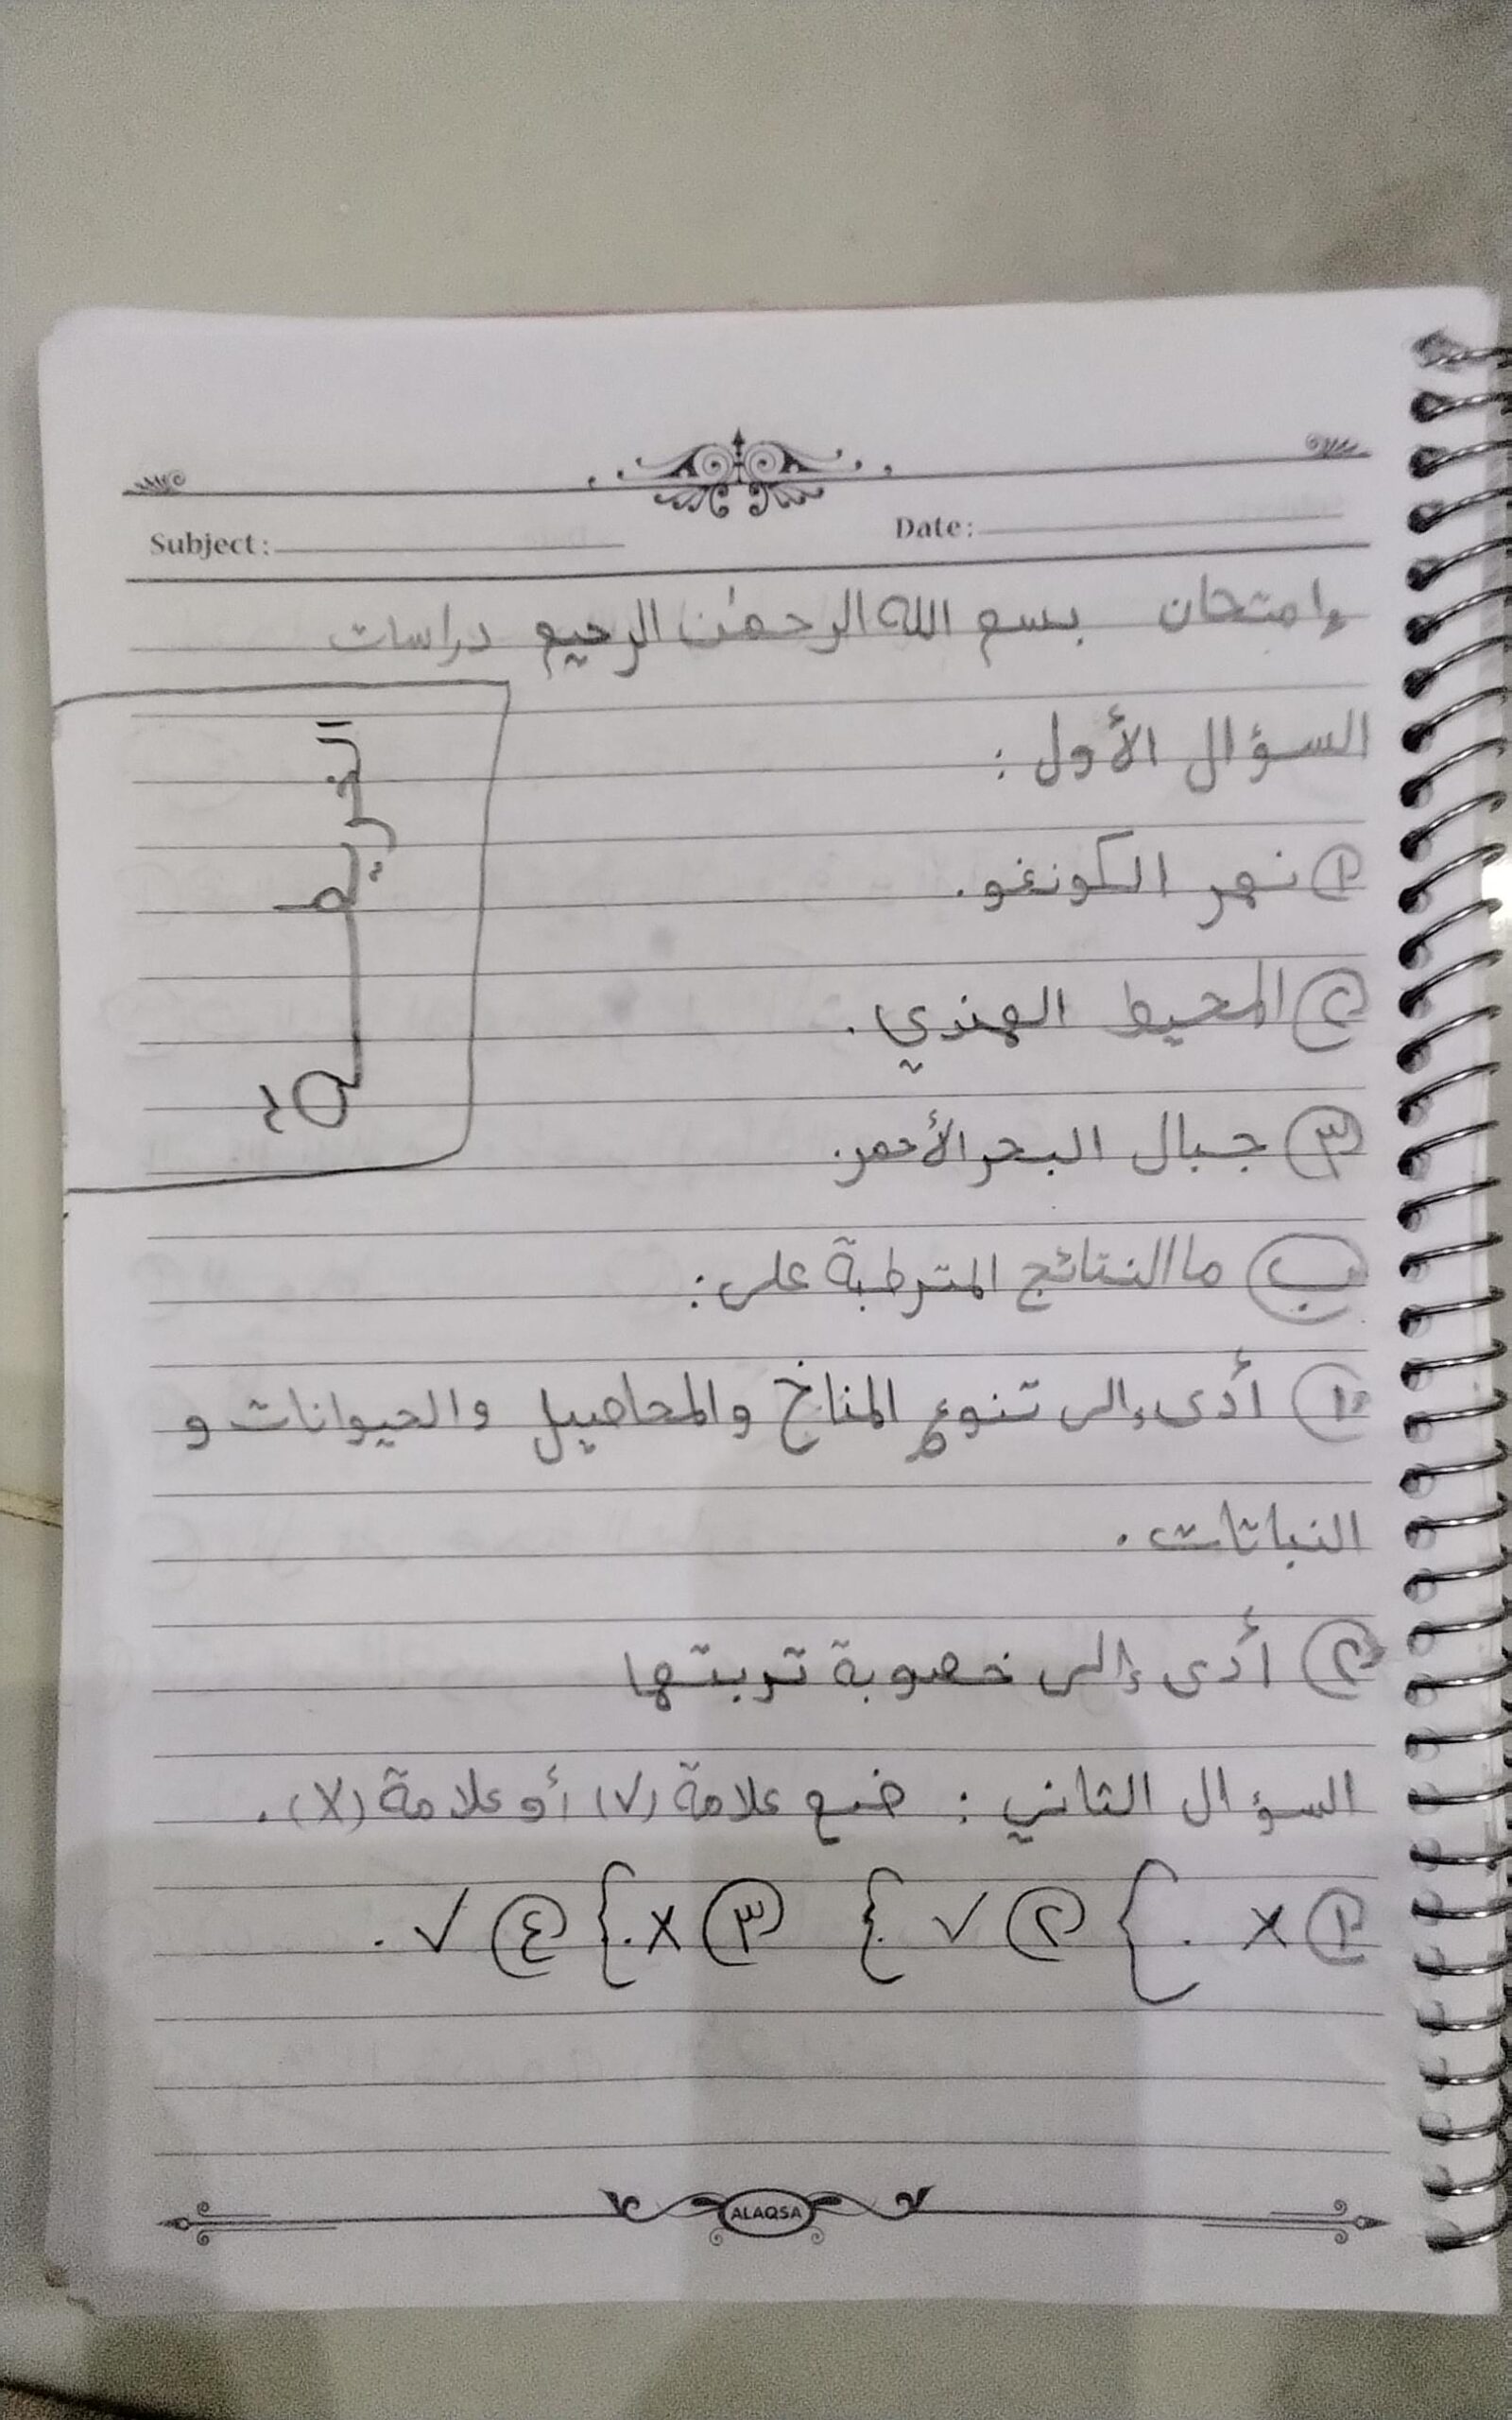 Subject:
Date:
إمتحان بسم الله الرحمٰن الرحيم دراسات
السؤال الأول :
الخريطة
١ نهر الكونغو.
٢ المحيط الهندي.
٣ جبال البحر الأحمر.
ب ما النتائج المترطبة على :
١ أدى إلى تنوع المناخ والمحاصيل والحيوانات و
النباتات.
٢ أدى إلى خصوبة تربتها
السؤال الثاني : ضع علامة (√) أو علامة (X).
١ X . } ٢ √ { ٣ X. } ٤ √ .
ALAQSA